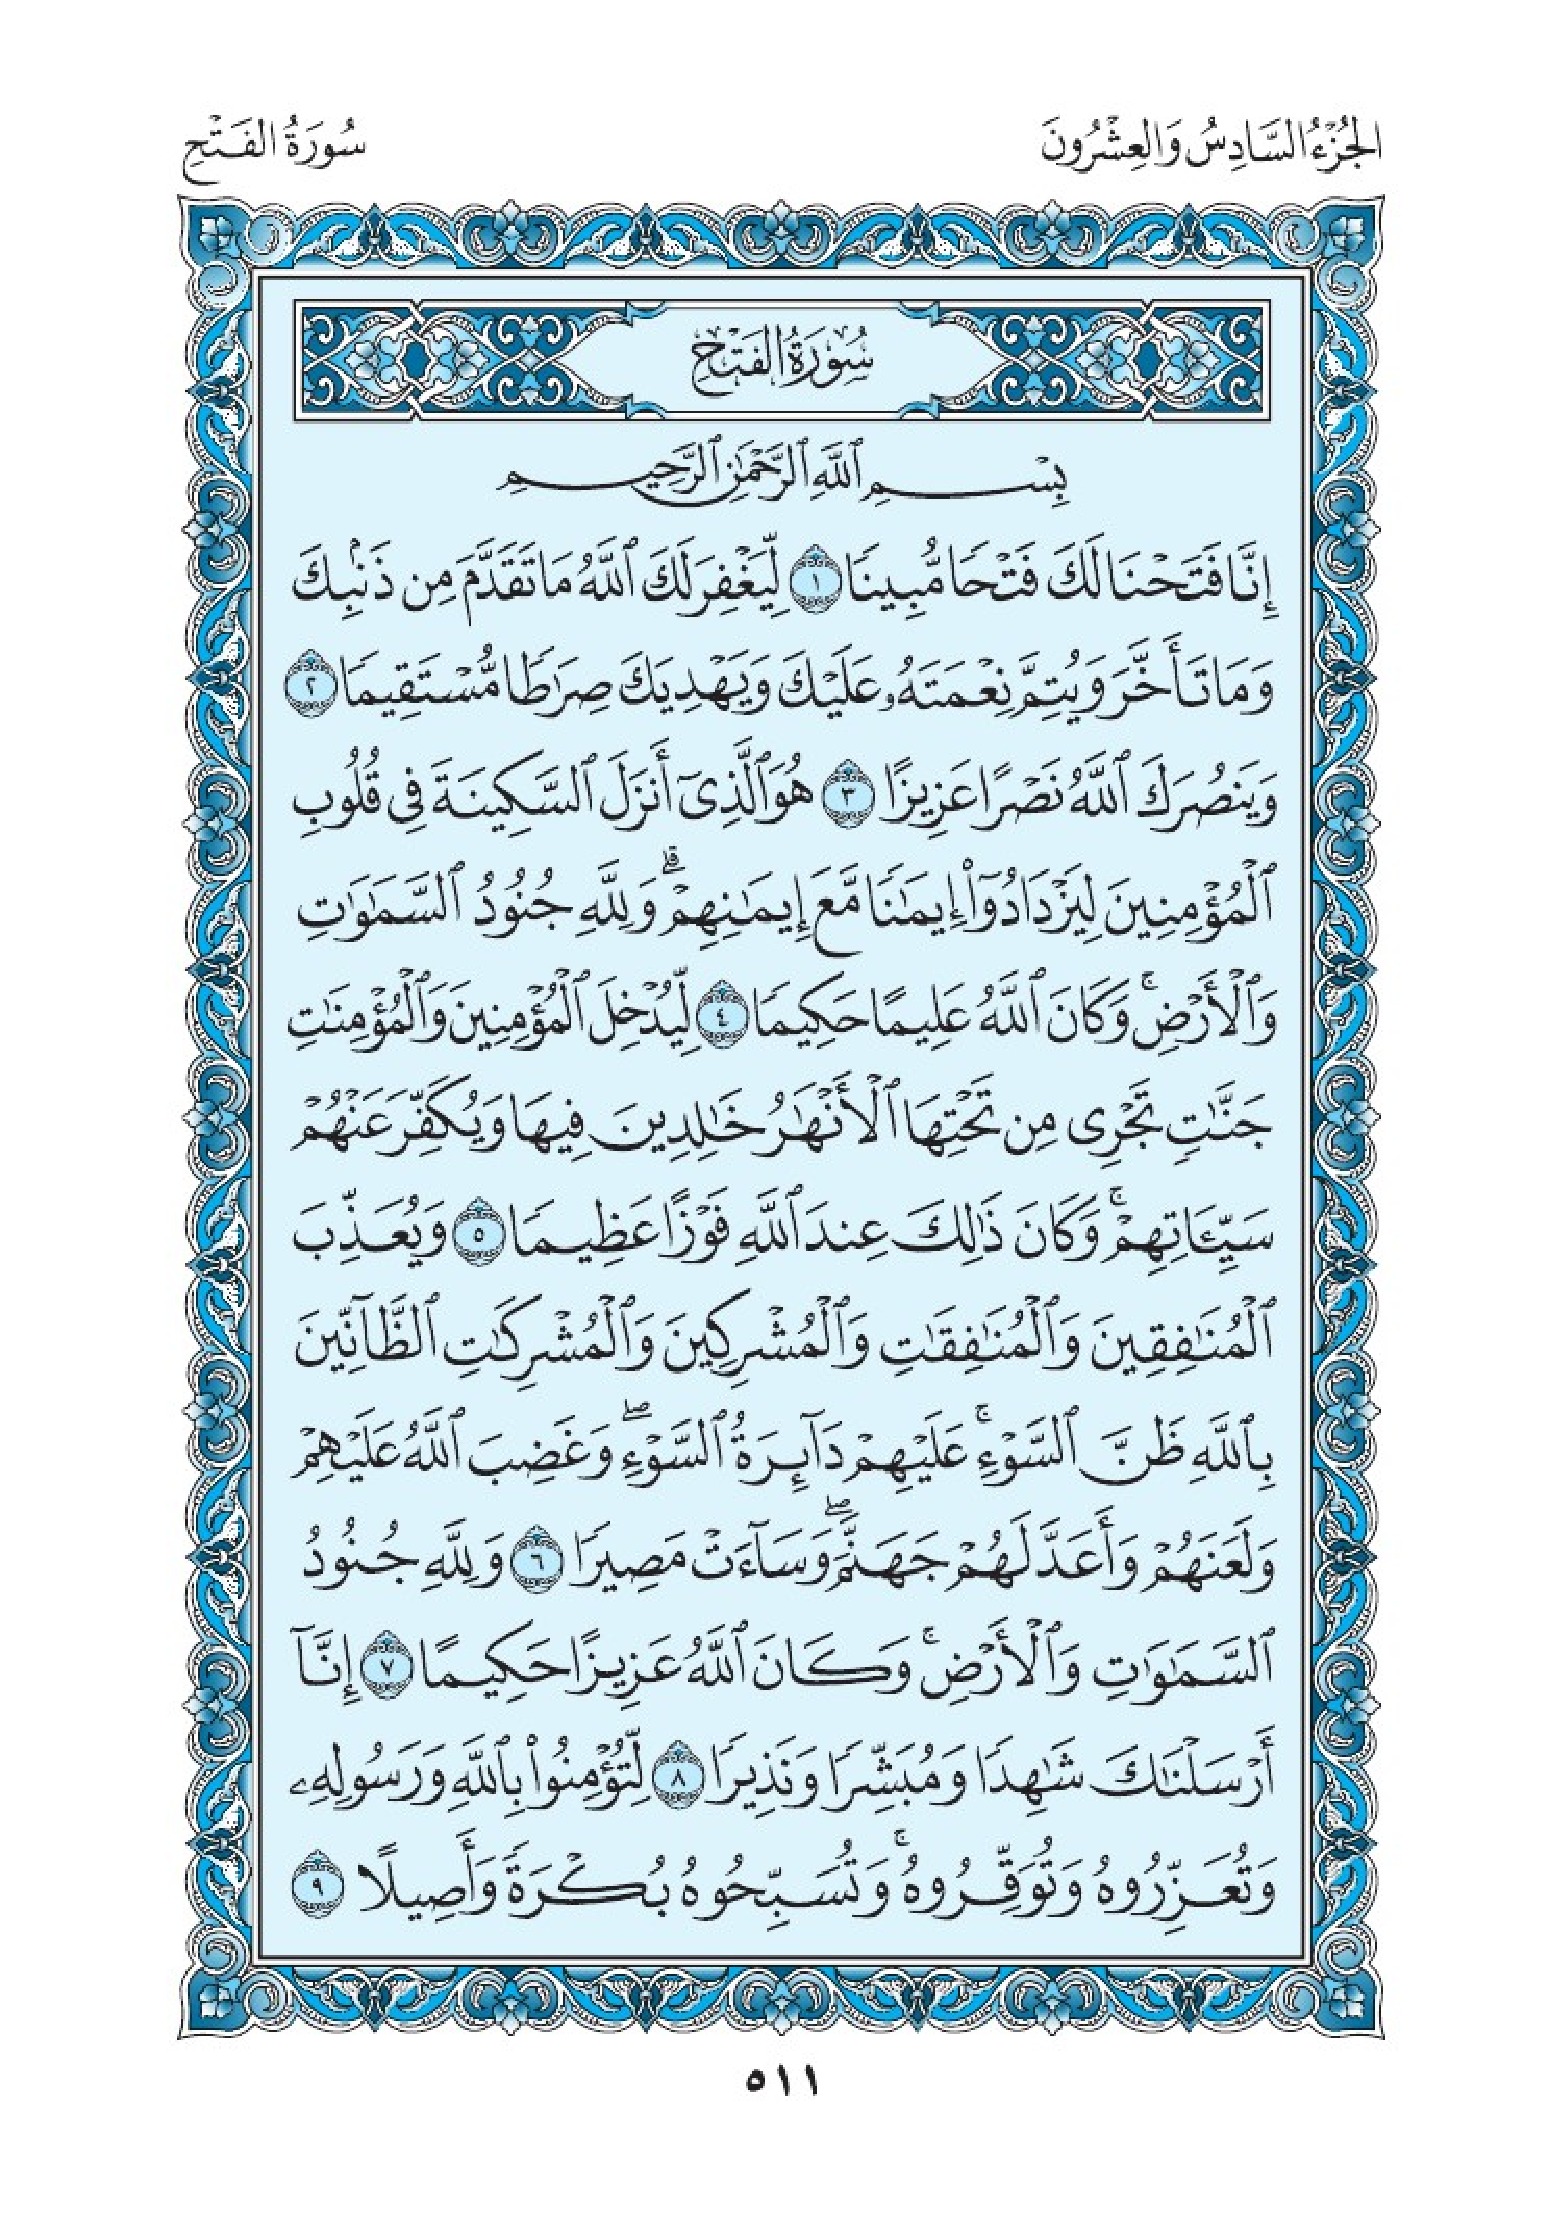 الجُزْءُ السَّادِسُ وَالعِشْرُونَ
سُورَةُ الفَتْحِ
سُورَةُ الفَتْحِ
بِسْمِ ٱللَّهِ ٱلرَّحْمَٰنِ ٱلرَّحِيمِ
إِنَّا فَتَحْنَا لَكَ فَتْحًا مُّبِينًا ١ لِّيَغْفِرَ لَكَ ٱللَّهُ مَا تَقَدَّمَ مِن ذَنۢبِكَ
وَمَا تَأَخَّرَ وَيُتِمَّ نِعْمَتَهُۥ عَلَيْكَ وَيَهْدِيَكَ صِرَٰطًا مُّسْتَقِيمًا ٢
وَيَنصُرَكَ ٱللَّهُ نَصْرًا عَزِيزًا ٣ هُوَ ٱلَّذِىٓ أَنزَلَ ٱلسَّكِينَةَ فِى قُلُوبِ
ٱلْمُؤْمِنِينَ لِيَزْدَادُوٓا۟ إِيمَٰنًا مَّعَ إِيمَٰنِهِمْ ۗ وَلِلَّهِ جُنُودُ ٱلسَّمَٰوَٰتِ
وَٱلْأَرْضِ ۚ وَكَانَ ٱللَّهُ عَلِيمًا حَكِيمًا ٤ لِّيُدْخِلَ ٱلْمُؤْمِنِينَ وَٱلْمُؤْمِنَٰتِ
جَنَّٰتٍ تَجْرِى مِن تَحْتِهَا ٱلْأَنْهَٰرُ خَٰلِدِينَ فِيهَا وَيُكَفِّرَ عَنْهُمْ
سَيِّـَٔاتِهِمْ ۚ وَكَانَ ذَٰلِكَ عِندَ ٱللَّهِ فَوْزًا عَظِيمًا ٥ وَيُعَذِّبَ
ٱلْمُنَٰفِقِينَ وَٱلْمُنَٰفِقَٰتِ وَٱلْمُشْرِكِينَ وَٱلْمُشْرِكَٰتِ ٱلظَّآنِّينَ
بِٱللَّهِ ظَنَّ ٱلسَّوْءِ ۚ عَلَيْهِمْ دَآئِرَةُ ٱلسَّوْءِ ۖ وَغَضِبَ ٱللَّهُ عَلَيْهِمْ
وَلَعَنَهُمْ وَأَعَدَّ لَهُمْ جَهَنَّمَ ۖ وَسَآءَتْ مَصِيرًا ٦ وَلِلَّهِ جُنُودُ
ٱلسَّمَٰوَٰتِ وَٱلْأَرْضِ ۚ وَكَانَ ٱللَّهُ عَزِيزًا حَكِيمًا ٧ إِنَّآ
أَرْسَلْنَٰكَ شَٰهِدًا وَمُبَشِّرًا وَنَذِيرًا ٨ لِّتُؤْمِنُوا۟ بِٱللَّهِ وَرَسُولِهِۦ
وَتُعَزِّرُوهُ وَتُوَقِّرُوهُ ۚ وَتُسَبِّحُوهُ بُكْرَةً وَأَصِيلًا ٩
٥١١